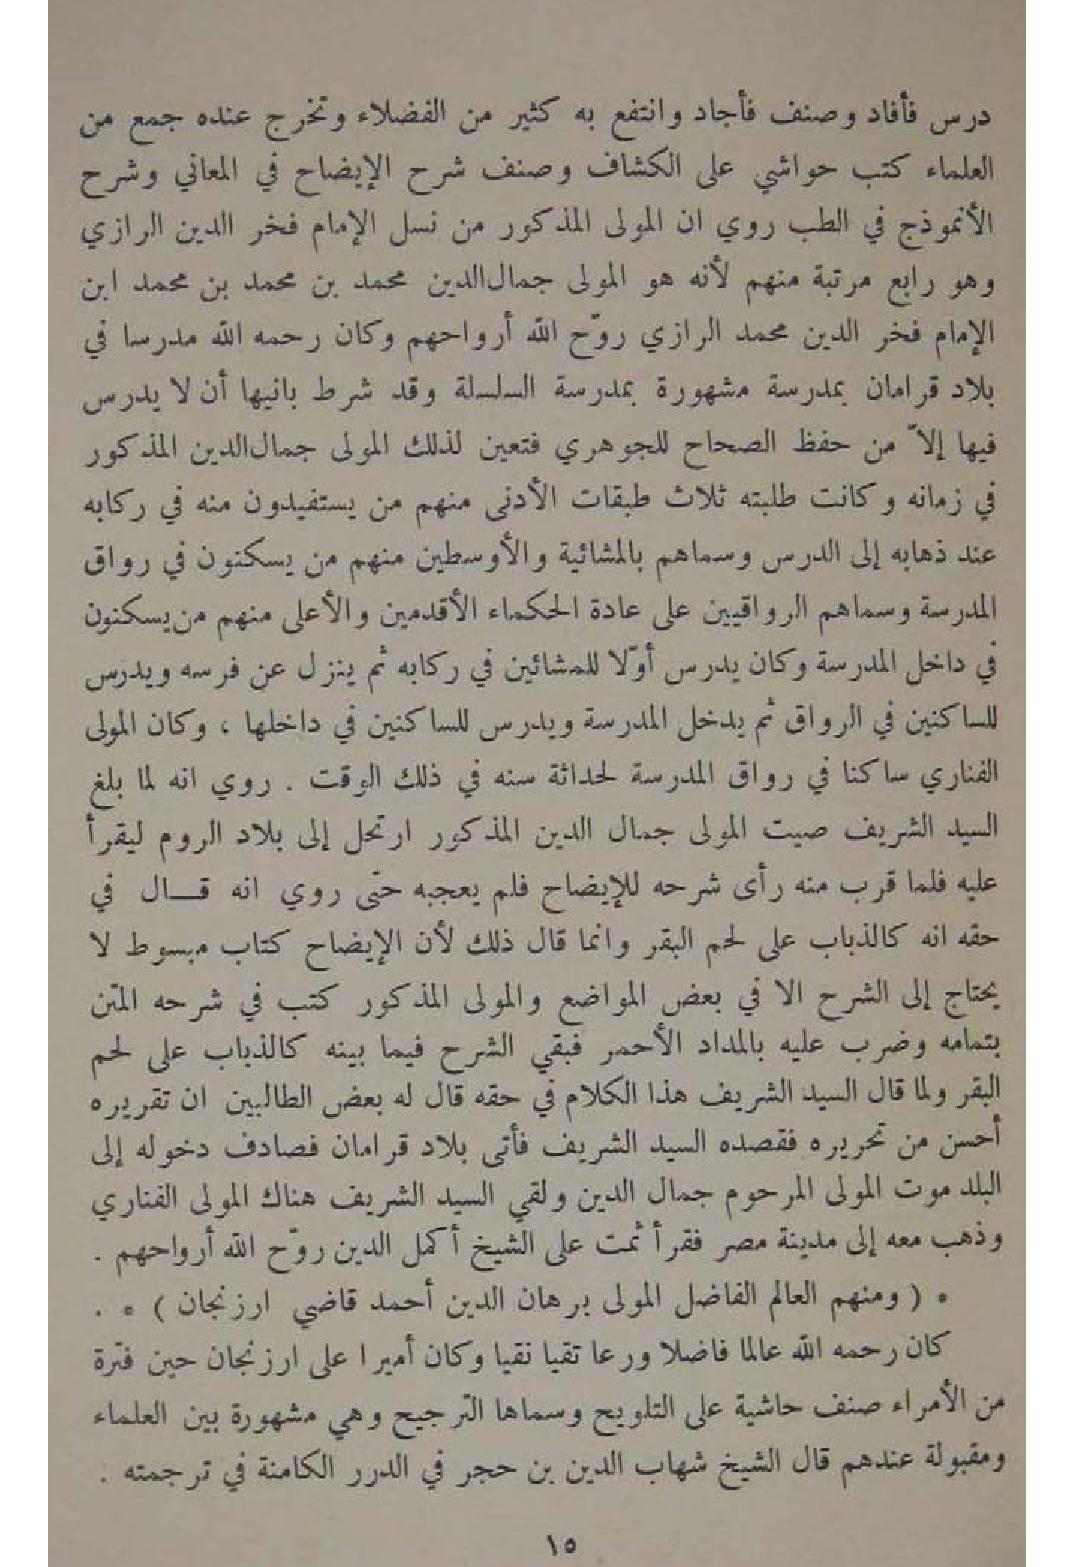 درس فأفاد وصنف فأجاد وانتفع به كثير من الفضلاء وتخرج عنده جمع من
العلماء كتب حواشي على الكشاف وصنف شرح الإيضاح في المعاني وشرح
الأنموذج في الطب روي ان المولى المذكور من نسل الإمام فخر الدين الرازي
وهو رابع مرتبة منهم لأنه هو المولى جمال‌الدين محمد بن محمد بن محمد ابن
الإمام فخر الدين محمد الرازي روّح الله أرواحهم وكان رحمه الله مدرسا في
بلاد قرامان بمدرسة مشهورة بمدرسة السلسلة وقد شرط بانيها أن لا يدرس
فيها إلاّ من حفظ الصحاح للجوهري فتعين لذلك المولى جمال‌الدين المذكور
في زمانه وكانت طلبته ثلاث طبقات الأدنى منهم من يستفيدون منه في ركابه
عند ذهابه إلى الدرس وسماهم بالمشائية والأوسطين منهم من يسكنون في رواق
المدرسة وسماهم الرواقيين على عادة الحكماء الأقدمين والأعلى منهم من يسكنون
في داخل المدرسة وكان يدرس أوّلا للمشائين في ركابه ثم ينزل عن فرسه ويدرس
للساكنين في الرواق ثم يدخل المدرسة ويدرس للساكنين في داخلها ، وكان المولى
الفناري ساكنا في رواق المدرسة لحداثة سنه في ذلك الوقت . روي انه لما بلغ
السيد الشريف صيت المولى جمال الدين المذكور ارتحل إلى بلاد الروم ليقرأ
عليه فلما قرب منه رأى شرحه للإيضاح فلم يعجبه حتى روي انه قـــال في
حقه انه كالذباب على لحم البقر وانما قال ذلك لأن الإيضاح كتاب مبسوط لا
يحتاج إلى الشرح الا في بعض المواضع والمولى المذكور كتب في شرحه المتن
بتمامه وضرب عليه بالمداد الأحمر فبقي الشرح فيما بينه كالذباب على لحم
البقر ولما قال السيد الشريف هذا الكلام في حقه قال له بعض الطالبين ان تقريره
أحسن من تحريره فقصده السيد الشريف فأتى بلاد قرامان فصادف دخوله إلى
البلد موت المولى المرحوم جمال الدين ولقي السيد الشريف هناك المولى الفناري
وذهب معه إلى مدينة مصر فقرأ ثمت على الشيخ أكمل الدين روّح الله أرواحهم .
* ( ومنهم العالم الفاضل المولى برهان الدين أحمد قاضي ارزنجان ) * .
كان رحمه الله عالما فاضلا ورعا تقيا نقيا وكان أميرا على ارزنجان حين فترة
من الأمراء صنف حاشية على التلويح وسماها الترجيح وهي مشهورة بين العلماء
ومقبولة عندهم قال الشيخ شهاب الدين بن حجر في الدرر الكامنة في ترجمته .
١٥